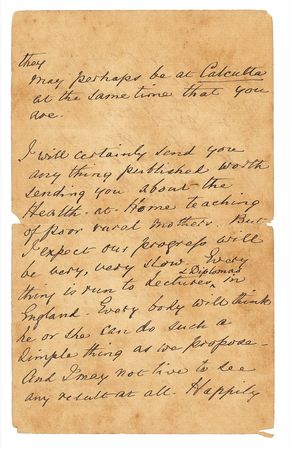 they
may perhaps be at Calcutta
at the same time that you
are.
I will certainly send you
any thing published worth
sending you about the
Health-at-Home teaching
of poor rural Mothers. But
I expect our progress will
be very, very slow. Every
& Diplomas
thing is run to lectures, in
England. Every body will think
he or she can do such a
simple thing as we propose -
And I may not live to see
any result at all. Happily